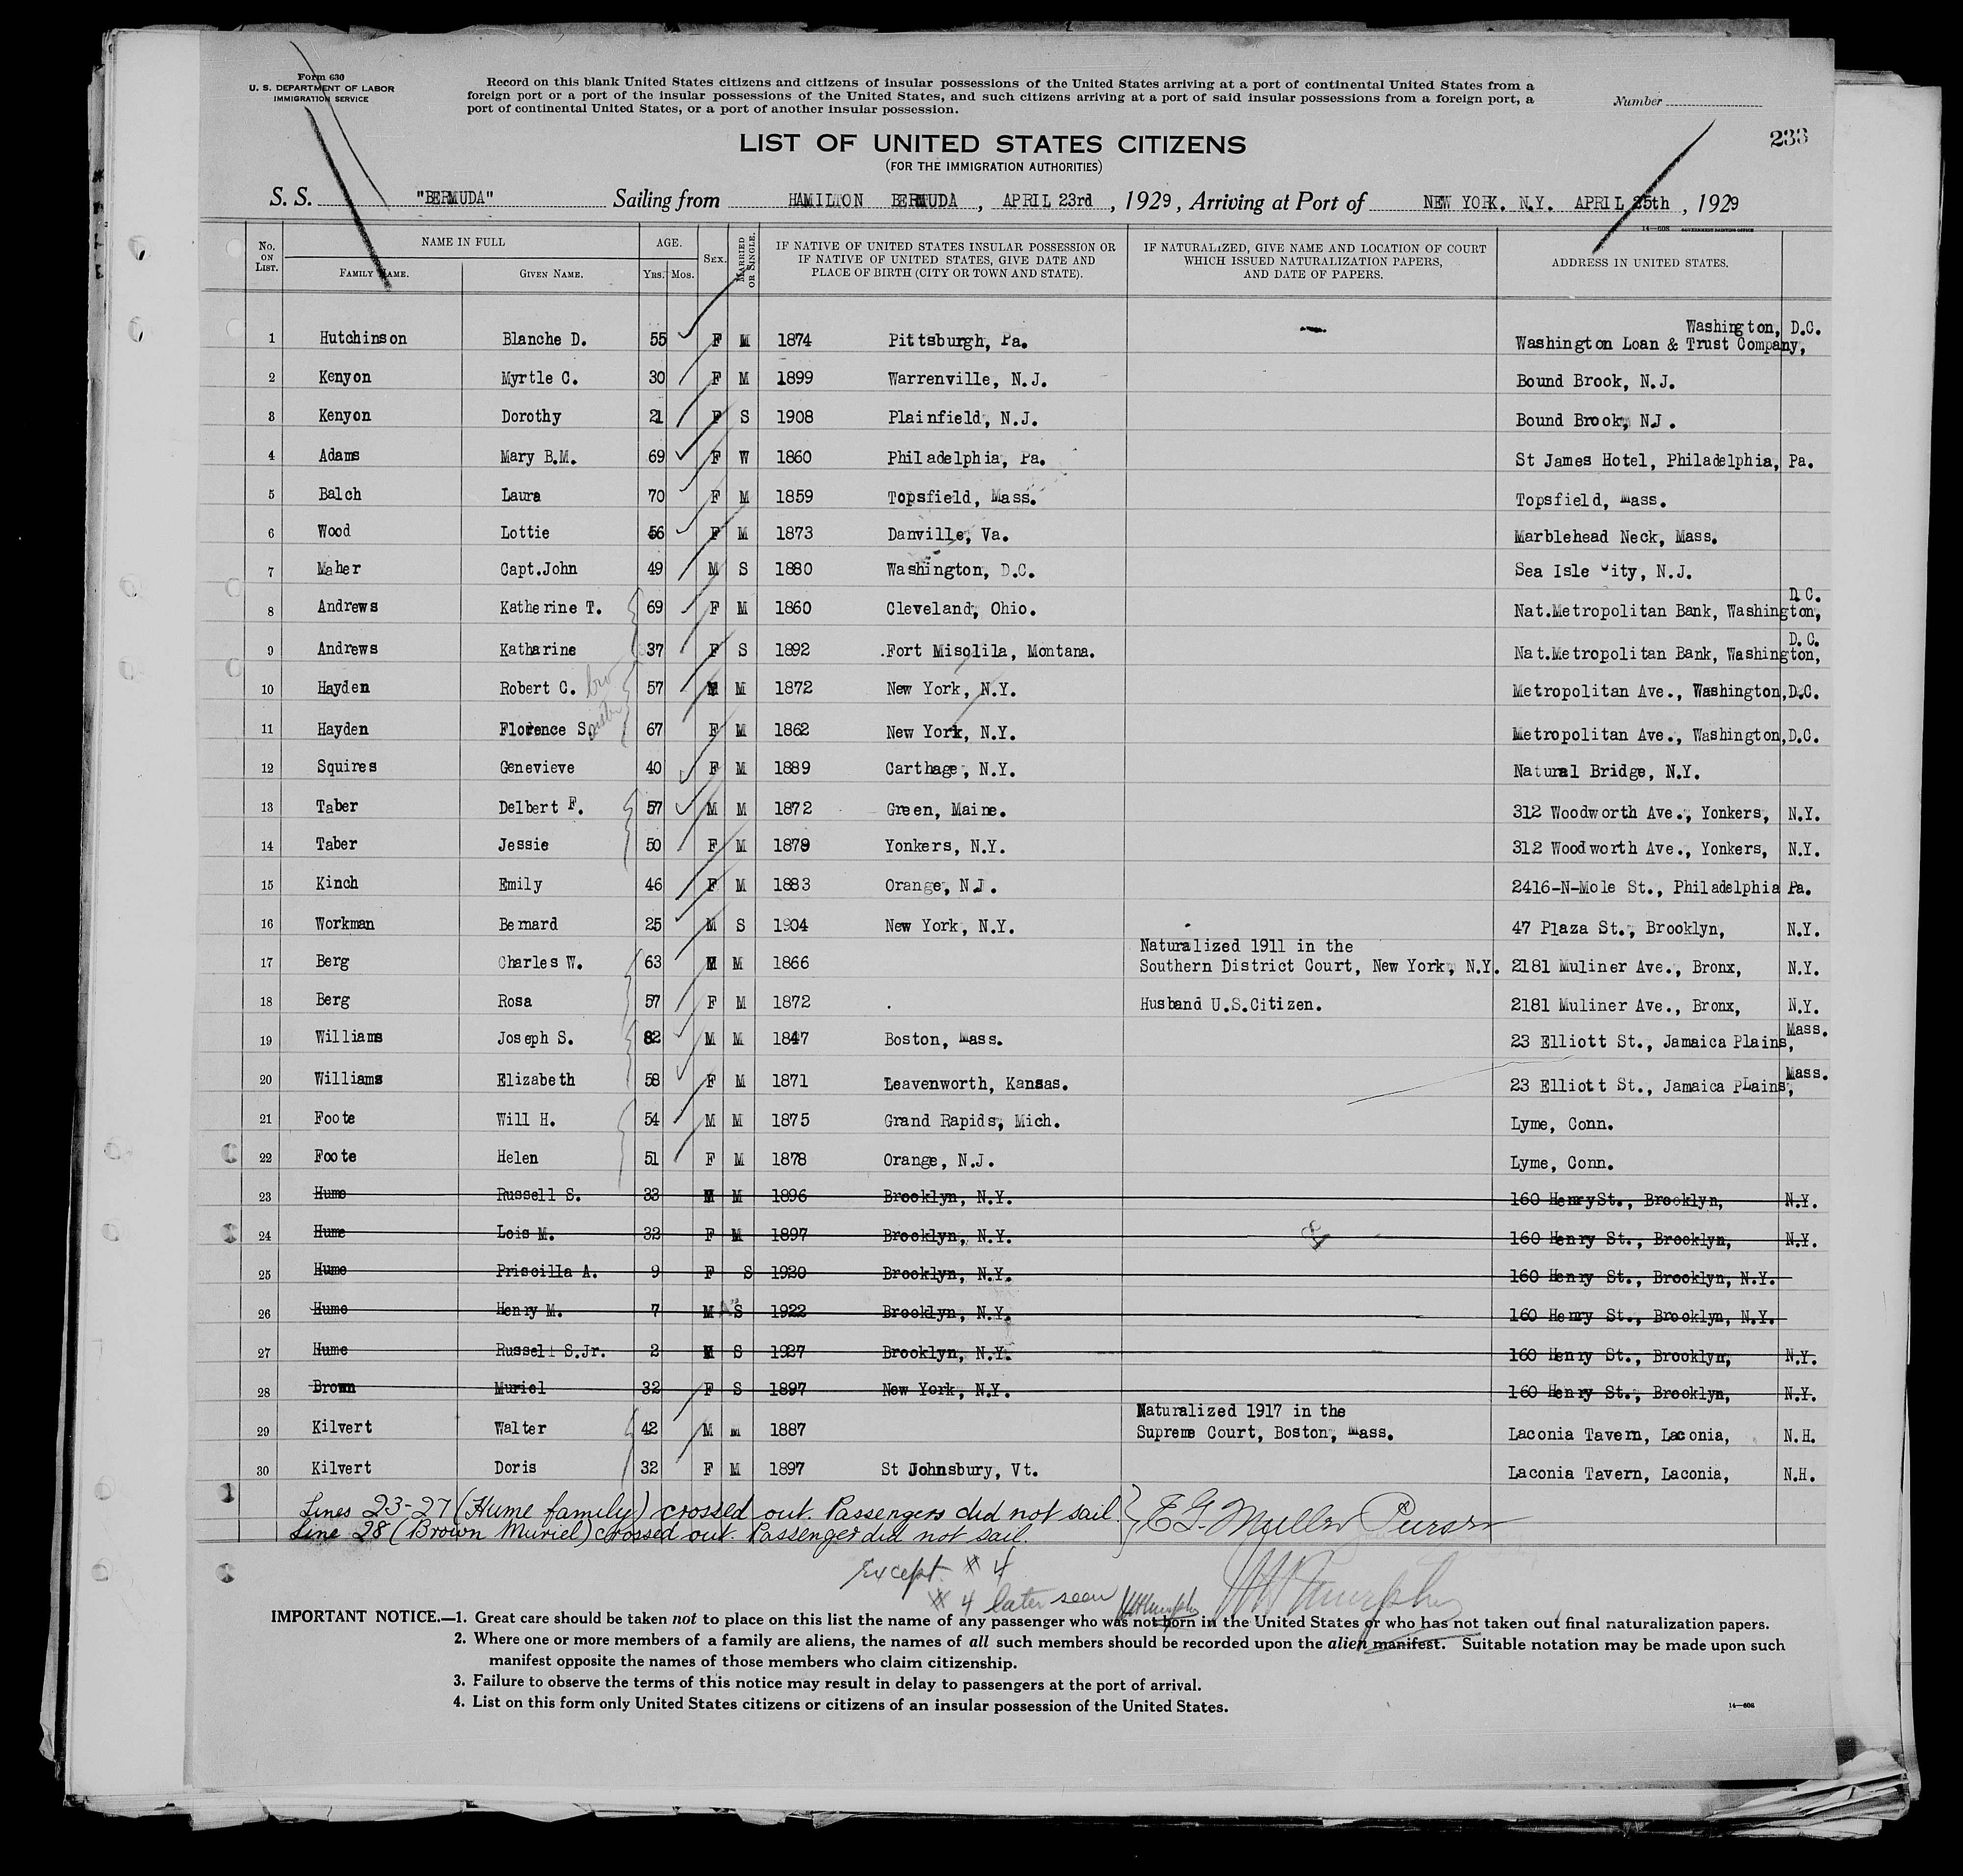 Form 630
U. S. DEPARTMENT OF LABOR
IMMIGRATION SERVICE
Record on this blank United States citizens and citizens of insular possessions of the United States arriving at a port of continental United States from a
foreign port or a port of the insular possessions of the United States, and such citizens arriving at a port of said insular possessions from a foreign port, a
port of continental United States, or a port of another insular possession.
Number
233
LIST OF UNITED STATES CITIZENS
(FOR THE IMMIGRATION AUTHORITIES)
S. S. "BERMUDA" Sailing from HAMILTON BERMUDA, APRIL 23rd, 1929, Arriving at Port of NEW YORK. N.Y. APRIL 25th, 1929
14—608 GOVERNMENT PRINTING OFFICE
No. ON LIST. NAME IN FULL FAMILY NAME. GIVEN NAME. AGE. YRS. MOS. SEX. MARRIED OR SINGLE. IF NATIVE OF UNITED STATES INSULAR POSSESSION OR IF NATIVE OF UNITED STATES, GIVE DATE AND PLACE OF BIRTH (CITY OR TOWN AND STATE). IF NATURALIZED, GIVE NAME AND LOCATION OF COURT WHICH ISSUED NATURALIZATION PAPERS, AND DATE OF PAPERS. ADDRESS IN UNITED STATES.
Washington, D.C.
1 Hutchinson Blanche D. 55 F M 1874 Pittsburgh, Pa. Washington Loan & Trust Company,
2 Kenyon Myrtle C. 30 F M 1899 Warrenville, N.J. Bound Brook, N.J.
3 Kenyon Dorothy 21 F S 1908 Plainfield, N.J. Bound Brook, N.J.
4 Adams Mary B.M. 69 F W 1860 Philadelphia, Pa. St James Hotel, Philadelphia, Pa.
5 Balch Laura 70 F M 1859 Topsfield, Mass. Topsfield, Mass.
6 Wood Lottie 56 F M 1873 Danville, Va. Marblehead Neck, Mass.
7 Maher Capt.John 49 M S 1880 Washington, D.C. Sea Isle City, N.J.
8 Andrews Katherine T. 69 F M 1860 Cleveland, Ohio. Nat.Metropolitan Bank, Washington, D.C.
9 Andrews Katharine 37 F S 1892 .Fort Misolila, Montana. Nat.Metropolitan Bank, Washington, D.C.
10 Hayden Robert C. bro 57 M M 1872 New York, N.Y. Metropolitan Ave., Washington,D.C.
11 Hayden Florence S. sister 67 F M 1862 New York, N.Y. Metropolitan Ave., Washington,D.C.
12 Squires Genevieve 40 F M 1889 Carthage, N.Y. Natural Bridge, N.Y.
13 Taber Delbert F. 57 M M 1872 Green, Maine. 312 Woodworth Ave., Yonkers, N.Y.
14 Taber Jessie 50 F M 1879 Yonkers, N.Y. 312 Woodworth Ave., Yonkers, N.Y.
15 Kinch Emily 46 F M 1883 Orange, N.J. 2416-N-Mole St., Philadelphia Pa.
16 Workman Bernard 25 M S 1904 New York, N.Y. 47 Plaza St., Brooklyn, N.Y.
Naturalized 1911 in the
17 Berg Charles W. 63 M M 1866 Southern District Court, New York, N.Y. 2181 Muliner Ave., Bronx, N.Y.
18 Berg Rosa 57 F M 1872 . Husband U.S.Citizen. 2181 Muliner Ave., Bronx, N.Y.
19 Williams Joseph S. 82 M M 1847 Boston, Mass. 23 Elliott St., Jamaica Plains, Mass.
20 Williams Elizabeth 58 F M 1871 Leavenworth, Kansas. 23 Elliott St., Jamaica PLains, Mass.
21 Foote Will H. 54 M M 1875 Grand Rapids, Mich. Lyme, Conn.
22 Foote Helen 51 F M 1878 Orange, N.J. Lyme, Conn.
23 Hume Russell S. 33 M M 1896 Brooklyn, N.Y. 160 HenrySt., Brooklyn, N.Y.
24 Hume Lois M. 32 F M 1897 Brooklyn, N.Y. 160 Henry St., Brooklyn, N.Y.
25 Hume Priscilla A. 9 F S 1920 Brooklyn, N.Y. 160 Henry St., Brooklyn, N.Y.
26 Hume Henry M. 7 M S 1922 Brooklyn, N.Y. 160 Henry St., Brooklyn, N.Y.
27 Hume Russell S.Jr. 2 M S 1927 Brooklyn, N.Y. 160 Henry St., Brooklyn, N.Y.
28 Brown Muriel 32 F S 1897 New York, N.Y. 160 Henry St., Brooklyn, N.Y.
Naturalized 1917 in the
29 Kilvert Walter 42 M M 1887 Supreme Court, Boston, Mass. Laconia Tavern, Laconia, N.H.
30 Kilvert Doris 32 F M 1897 St Johnsbury, Vt. Laconia Tavern, Laconia, N.H.
Lines 23-27 (Hume family) crossed out. Passengers did not sail.
Line 28 (Brown Muriel) crossed out. Passenger did not sail. E G Muller Purser
Except # 4
# 4 later seen WHMurphy WH Murphy
IMPORTANT NOTICE.—1. Great care should be taken not to place on this list the name of any passenger who was not born in the United States or who has not taken out final naturalization papers.
2. Where one or more members of a family are aliens, the names of all such members should be recorded upon the alien manifest. Suitable notation may be made upon such
manifest opposite the names of those members who claim citizenship.
3. Failure to observe the terms of this notice may result in delay to passengers at the port of arrival.
4. List on this form only United States citizens or citizens of an insular possession of the United States.
14—608